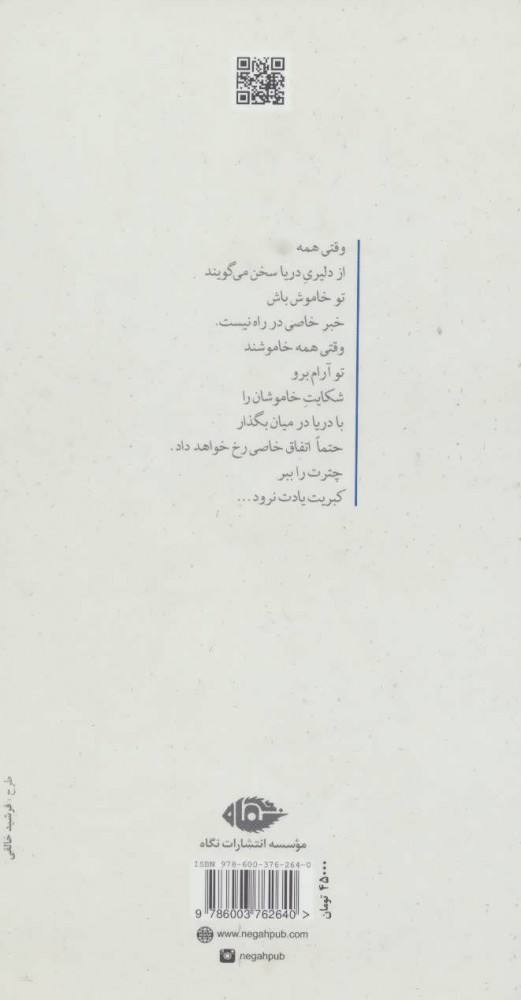 وقتی همه
از دلیریِ دریا سخن می‌گویند
تو خاموش باش
خبر خاصی در راه نیست.
وقتی همه خاموشند
تو آرام برو
شکایتِ خاموشان را
با دریا در میان بگذار
حتماً اتفاق خاصی رخ خواهد داد.
چترت را ببر
کبریت یادت نرود...
طرح: فرشید خالقی
نگاه
مؤسسه انتشارات نگاه
ISBN 978-600-376-264-0
9 786003 762640 >
۴۵۰۰۰ تومان
www.negahpub.com
negahpub